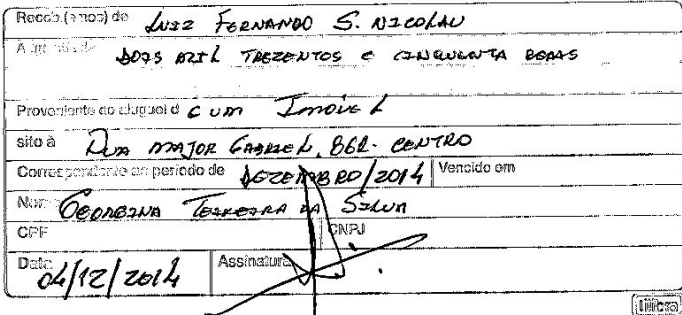 Receb.(emos) de LUIZ FERNANDO S. NICOLAU
DOIS MIL TREZENTOS E CINQUENTA REAIS
Proveniente do aluguel d E UM IMOVEL
sito à RUA MAJOR GABRIEL, 862 - CENTRO
Correspondente ao período de DEZEMBRO/2014 Vencido em
Nome GEORGINA TEIXEIRA DA SILVA
CPF CNPJ
Data 04/12/2014 Assinatura